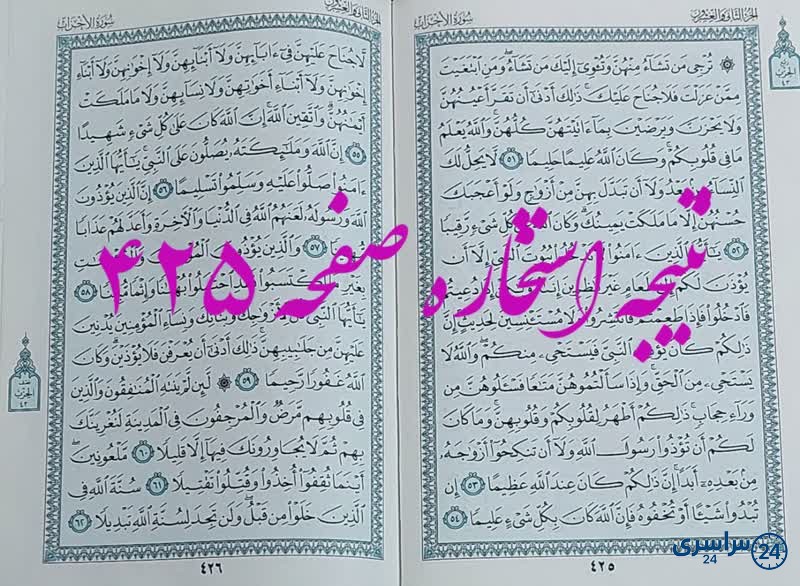 الجزء الثاني والعشرون
سورة الأحزاب
۞ تُرْجِي مَن تَشَاءُ مِنْهُنَّ وَتُـْٔوِيٓ إِلَيْكَ مَن تَشَاءُ وَمَنِ ابْتَغَيْتَ
مِمَّنْ عَزَلْتَ فَلَا جُنَاحَ عَلَيْكَ ذَٰلِكَ أَدْنَىٰٓ أَن تَقَرَّ أَعْيُنُهُنَّ
وَلَا يَحْزَنَّ وَيَرْضَيْنَ بِمَآ ءَاتَيْتَهُنَّ كُلُّهُنَّ وَاللَّهُ يَعْلَمُ
مَا فِي قُلُوبِكُمْ وَكَانَ اللَّهُ عَلِيمًا حَلِيمًا ٥١ لَّا يَحِلُّ لَكَ
النِّسَآءُ مِنۢ بَعْدُ وَلَآ أَن تَبَدَّلَ بِهِنَّ مِنْ أَزْوَٰجٍ وَلَوْ أَعْجَبَكَ
حُسْنُهُنَّ إِلَّا مَا مَلَكَتْ يَمِينُكَ وَكَانَ اللَّهُ عَلَىٰ كُلِّ شَيْءٍ رَّقِيبًا
٥٢ يَٰٓأَيُّهَا الَّذِينَ ءَامَنُوا لَا تَدْخُلُوا بُيُوتَ النَّبِيِّ إِلَّآ أَن
يُؤْذَنَ لَكُمْ إِلَىٰ طَعَامٍ غَيْرَ نَٰظِرِينَ إِنَىٰهُ وَلَٰكِنْ إِذَا دُعِيتُمْ
فَادْخُلُوا فَإِذَا طَعِمْتُمْ فَانتَشِرُوا وَلَا مُسْتَـْٔنِسِينَ لِحَدِيثٍ إِنَّ
ذَٰلِكُمْ كَانَ يُؤْذِي النَّبِيَّ فَيَسْتَحْيِۦ مِنكُمْ وَاللَّهُ لَا
يَسْتَحْيِۦ مِنَ الْحَقِّ وَإِذَا سَأَلْتُمُوهُنَّ مَتَٰعًا فَسْـَٔلُوهُنَّ مِن
وَرَآءِ حِجَابٍ ذَٰلِكُمْ أَطْهَرُ لِقُلُوبِكُمْ وَقُلُوبِهِنَّ وَمَا كَانَ
لَكُمْ أَن تُؤْذُوا رَسُولَ اللَّهِ وَلَآ أَن تَنكِحُوٓا أَزْوَٰجَهُۥ
مِنۢ بَعْدِهِۦٓ أَبَدًا إِنَّ ذَٰلِكُمْ كَانَ عِندَ اللَّهِ عَظِيمًا ٥٣ إِن
تُبْدُوا شَيْـًٔا أَوْ تُخْفُوهُ فَإِنَّ اللَّهَ كَانَ بِكُلِّ شَيْءٍ عَلِيمًا ٥٤
٤٢٥
الجزء الثاني والعشرون
سورة الأحزاب
لَّا جُنَاحَ عَلَيْهِنَّ فِيٓ ءَابَآئِهِنَّ وَلَآ أَبْنَآئِهِنَّ وَلَآ إِخْوَٰنِهِنَّ وَلَآ أَبْنَآءِ
إِخْوَٰنِهِنَّ وَلَآ أَبْنَآءِ أَخَوَٰتِهِنَّ وَلَا نِسَآئِهِنَّ وَلَا مَا مَلَكَتْ
أَيْمَٰنُهُنَّ وَاتَّقِينَ اللَّهَ إِنَّ اللَّهَ كَانَ عَلَىٰ كُلِّ شَيْءٍ شَهِيدًا
٥٥ إِنَّ اللَّهَ وَمَلَٰٓئِكَتَهُۥ يُصَلُّونَ عَلَى النَّبِيِّ يَٰٓأَيُّهَا الَّذِينَ
ءَامَنُوا صَلُّوا عَلَيْهِ وَسَلِّمُوا تَسْلِيمًا ٥٦ إِنَّ الَّذِينَ يُؤْذُونَ
اللَّهَ وَرَسُولَهُۥ لَعَنَهُمُ اللَّهُ فِي الدُّنْيَا وَالْـَٔاخِرَةِ وَأَعَدَّ لَهُمْ عَذَابًا
مُّهِينًا ٥٧ وَالَّذِينَ يُؤْذُونَ الْمُؤْمِنِينَ وَالْمُؤْمِنَٰتِ
بِغَيْرِ مَا اكْتَسَبُوا فَقَدِ احْتَمَلُوا بُهْتَٰنًا وَإِثْمًا مُّبِينًا ٥٨
يَٰٓأَيُّهَا النَّبِيُّ قُل لِّأَزْوَٰجِكَ وَبَنَاتِكَ وَنِسَآءِ الْمُؤْمِنِينَ يُدْنِينَ
عَلَيْهِنَّ مِن جَلَٰبِيبِهِنَّ ذَٰلِكَ أَدْنَىٰٓ أَن يُعْرَفْنَ فَلَا يُؤْذَيْنَ وَكَانَ
اللَّهُ غَفُورًا رَّحِيمًا ٥٩ ۞ لَّئِن لَّمْ يَنتَهِ الْمُنَٰفِقُونَ وَالَّذِينَ
فِي قُلُوبِهِم مَّرَضٌ وَالْمُرْجِفُونَ فِي الْمَدِينَةِ لَنُغْرِيَنَّكَ
بِهِمْ ثُمَّ لَا يُجَاوِرُونَكَ فِيهَآ إِلَّا قَلِيلًا ٦٠ مَّلْعُونِينَ
أَيْنَمَا ثُقِفُوٓا أُخِذُوا وَقُتِّلُوا تَقْتِيلًا ٦١ سُنَّةَ اللَّهِ فِي
الَّذِينَ خَلَوْا مِن قَبْلُ وَلَن تَجِدَ لِسُنَّةِ اللَّهِ تَبْدِيلًا ٦٢
٤٢٦
نتیجه استخاره صفحه ۴۲۵
سراسری 24
24